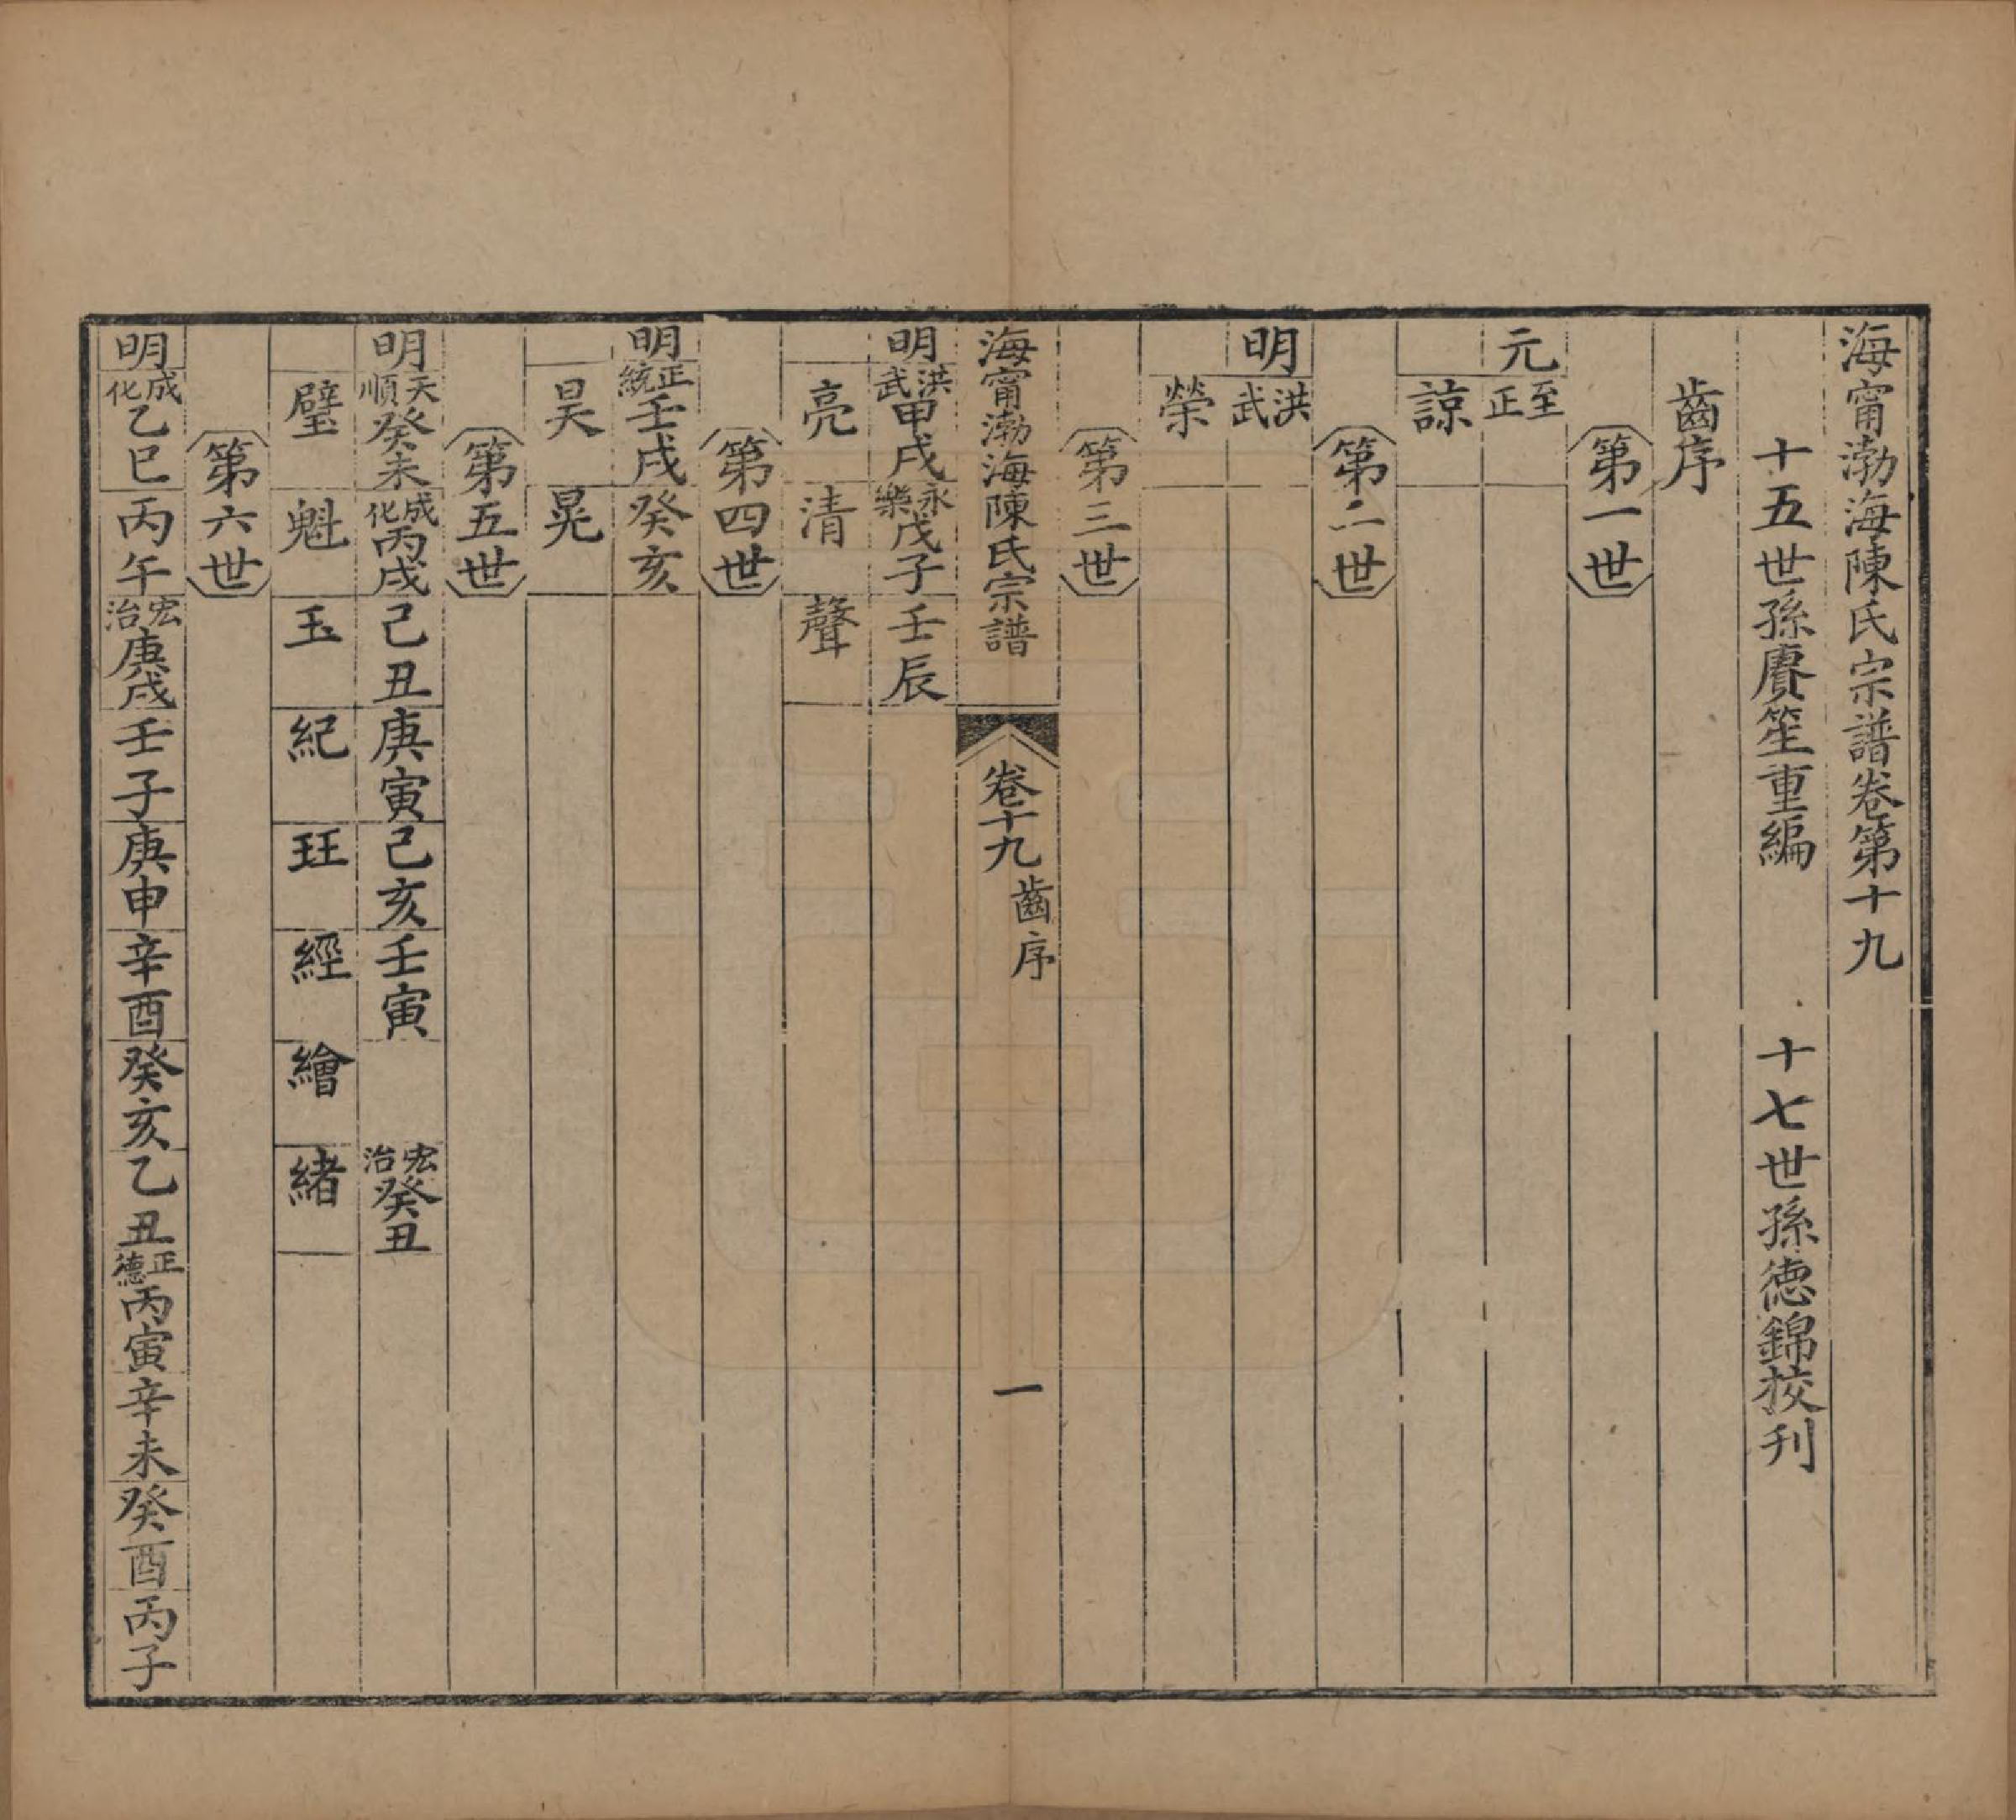 海甯渤海陳氏宗譜卷第十九
十五世孫賡笙重編　十七世孫德錦挍刊
齒序
第一世
元 至正
諒
第二世
明 洪武
榮
第三世
海甯渤海陳氏宗譜 卷十九 齒序 一
明 洪武甲戌 永樂戊子 壬辰
亮 清 聲
第四世
明 正統壬戌 癸亥
昊 晃
第五世
明 天順癸未 成化丙戌 己丑 庚寅 己亥 壬寅 宏治癸丑
璧 魁 玉 紀 玨 經 繪 緒
第六世
明 成化乙巳 丙午 宏治庚戌 壬子 庚申 辛酉 癸亥 乙丑 正德丙寅 辛未 癸酉 丙子